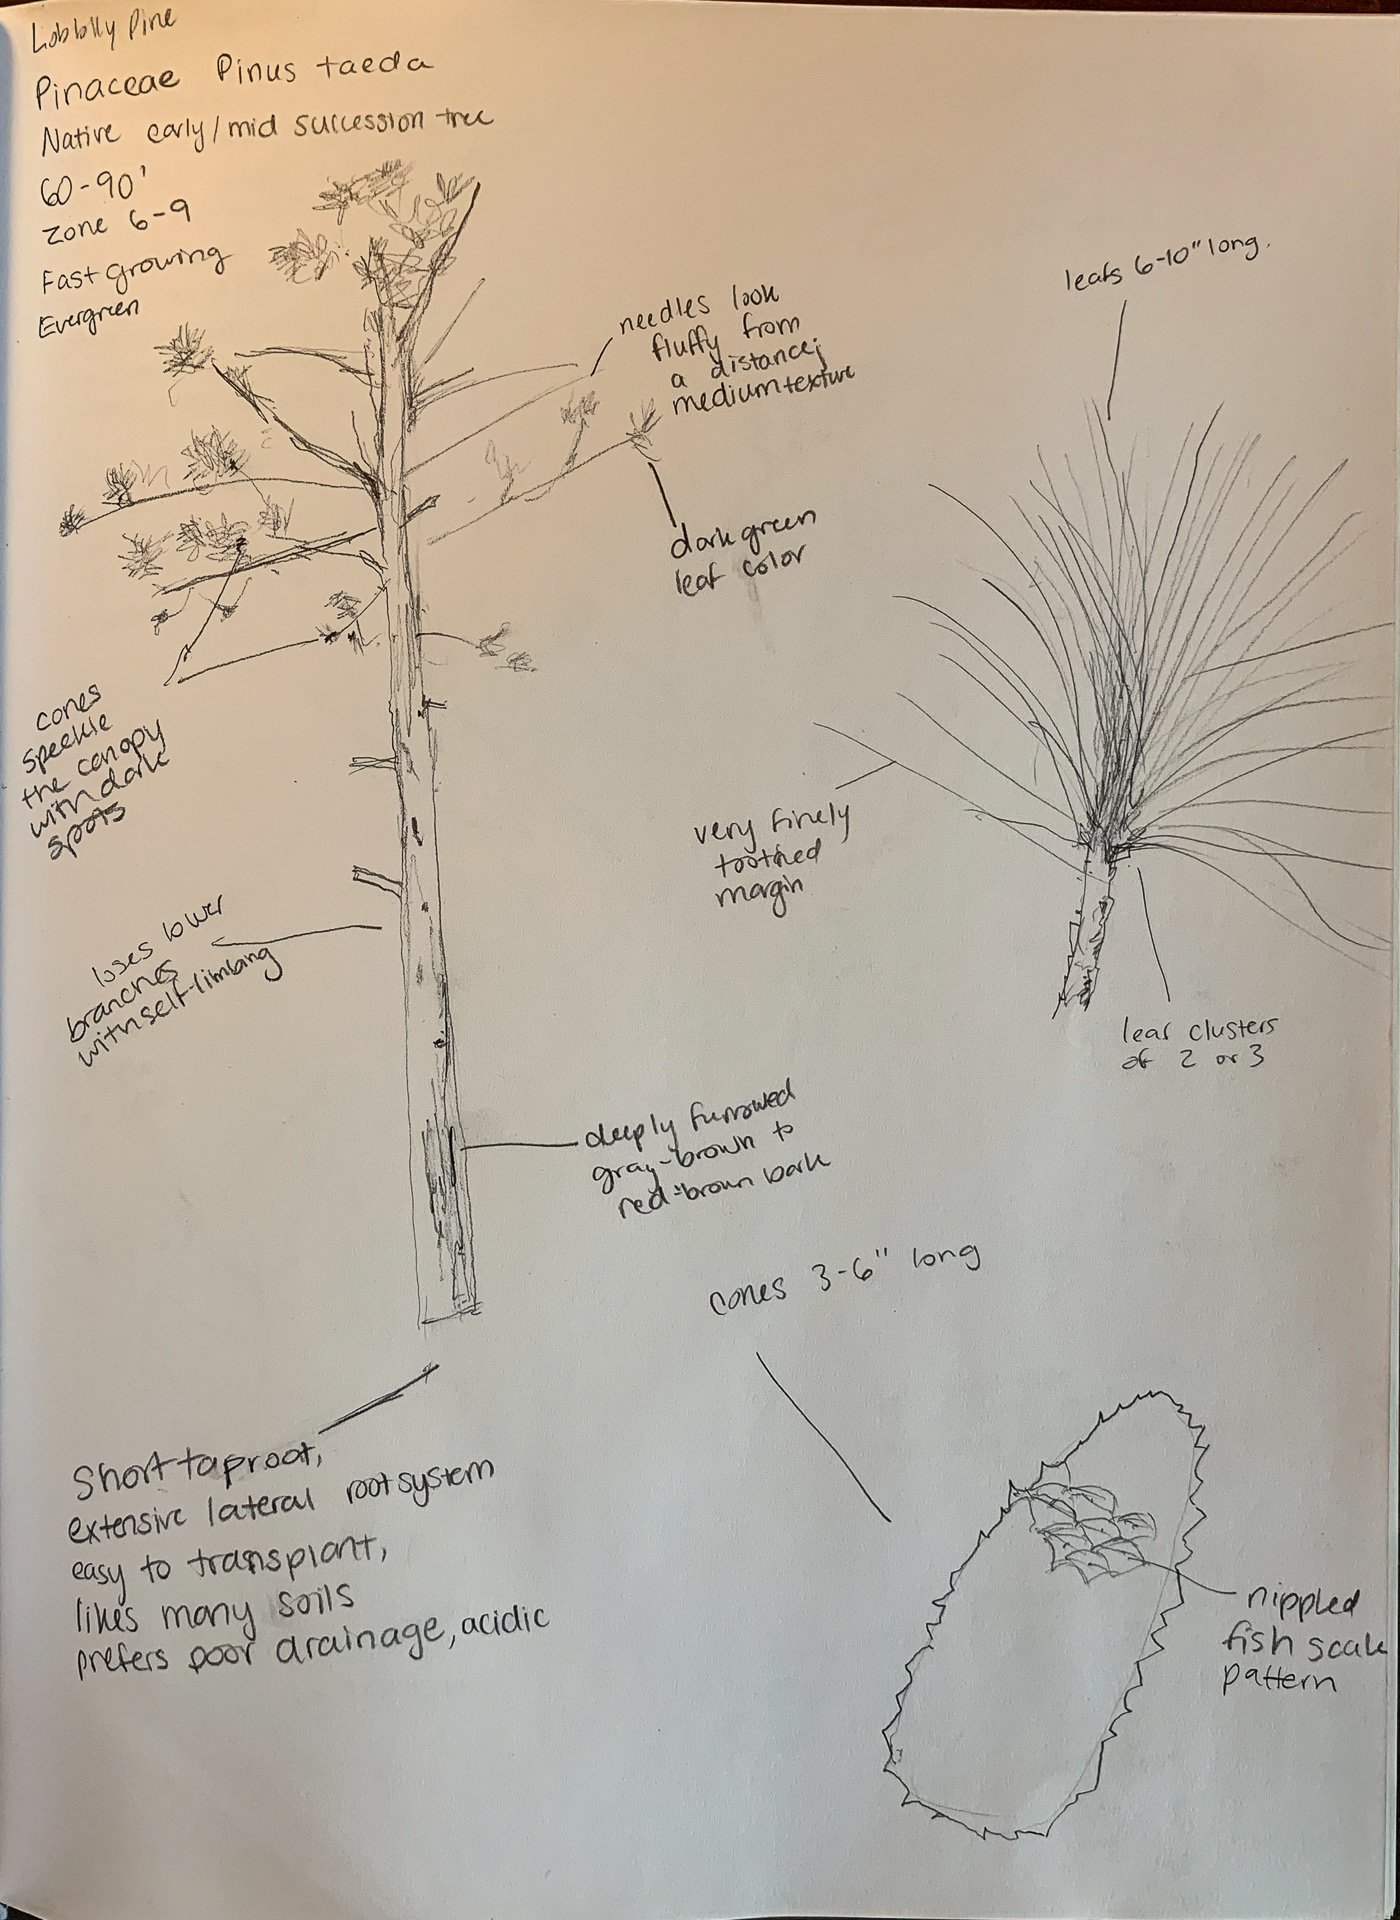 Loblolly Pine
Pinaceae Pinus taeda
Native early/mid succession tree
60-90'
zone 6-9
Fast growing
Evergreen
needles look
fluffy from
a distance;
medium texture
dark green
leaf color
cones
speckle
the canopy
with dark
spots
loses lower
branches
with self-limbing
deeply furrowed
gray-brown to
red-brown bark
Short taproot,
extensive lateral root system
easy to transplant,
likes many soils
prefers poor drainage, acidic
leafs 6-10" long.
very finely
toothed
margin
leaf clusters
of 2 or 3
cones 3-6" long
nippled
fish scale
pattern